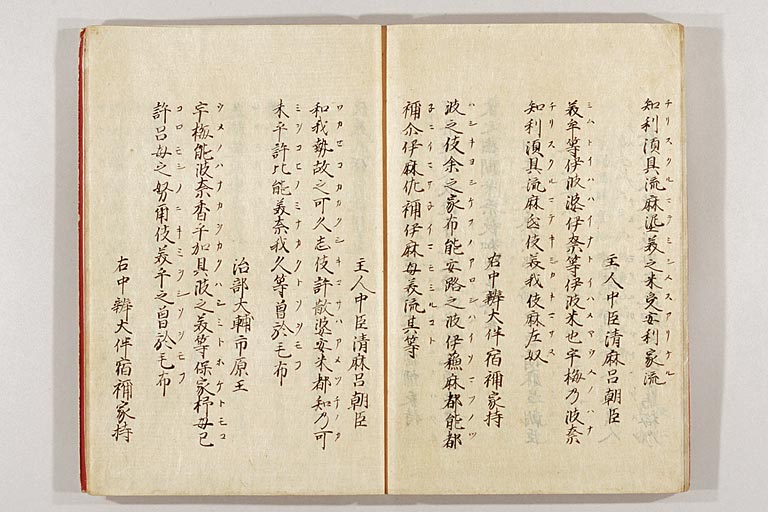 チリスクルマテミシメスアリケル
知利須具流麻埿美之米受安利家流
主人中臣清麻呂朝臣
ミムトイハハイナトイハメヤウメノハナ
美牟等伊波婆伊奈等伊波米也宇梅乃波奈
チリスクルマテキミカキマサヌ
知利須具流麻弖伎美我伎麻左奴
右中辨大伴宿禰家持
ハシキヨシケフノアロシハイソマツノツ
波之伎余之家布能安路之波伊蘓麻都能都
ネニイマサネイマモミルコト
禰尒伊麻佐禰伊麻母美流其等
主人中臣清麻呂朝臣
ワカセコシカクシキコサハアメツチノカ
和我勢故之可久志伎許散婆安米都知乃可
ミヲコヒノミナカクトソオモフ
未乎許比能美奈我久等曽於毛布
治部大輔市原王
ウメノハナカヲカクハシミトホケトモコ
宇梅能波奈香乎加具波之美等保家杼母己
コロモシノニキミヲシソオモフ
許呂母之努爾伎美乎之曽於毛布
右中辨大伴宿禰家持